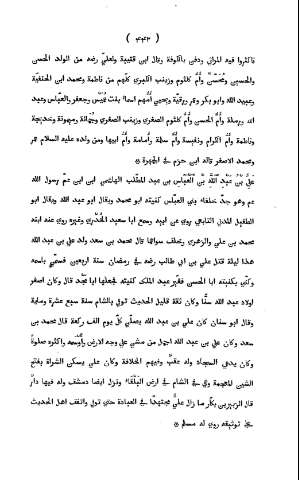 (٤٤٣)
فاكثروا فيه المراثى ودفن بالكوفة وقال ابن قتيبة ولعلى رضه من الولد الحسن
والحسين ومُحَسّن وأم كلثوم وزينب الكبرى كلهم من فاطمة ومحمد ابن الحنفية
وعبيد الله وابو بكر وعمر ورقية ويحيى أمهم اسما بنت عُمَيْس وجعفر والعباس وعبد
الله ورملة وأم الحسن وأم كلثوم الصغرى وزينب الصغرى وجُمانة وميمونة وخديجة
وفاطمة وأم الكرام ونفيسة وأم سلمة وأمامة وأم ابيها ومن ولده عليه السلام عمر
ومحمد الاصغر قاله ابن حزم فى الجمهرة ۞
على بن عبد الله بن العباس بن عبد المطلب الهاشمى ابن ابن عم رسول الله
عم وهو جد خلفاء بنى العباس كنيته ابو محمد ويقال ابو عبد الله ويقال ابو
الفضل المدنى التابعى روى عن ابيه وسمع ابا سعيد الخُدْرى وغيره روى عنه ابنه
محمد بن على والزهرى وخلف سواهما قال محمد بن سعد ولد على بن عبد الله
هذا ليلة قتل على بن ابى طالب رضه فى رمضان سنة اربعين فسمى باسمه
وكنى بكنيته ابا الحسن فغير عبد الملك كنيته فجعلها ابا محمد قال وكان اصغر
اولاد عبد الله سنًّا وكان ثقة قليل الحديث توفى بالشام سنة سبع عشرة وماية
وقال ابو سنان كان على بن عبد الله يصلى كل يوم الف ركعة قال محمد بن
سعد وكان على بن عبد الله اجمل من مشى على وجه الارض واوسمه واكثره صلوةً
وكان يدعى السجاد وله عقب وفيهم الخلافة وكان على يسكن الشراة بفتح
الشين المعجمة وهى فى الشام فى ارض البلقاء ونزل ايضا دمشق وله فيها دار
قال الزبير بن بكار ما زال على مجتهدا فى العبادة حتى توفى واتفق اهل الحديث
على توثيقه روى له مسلم ۞